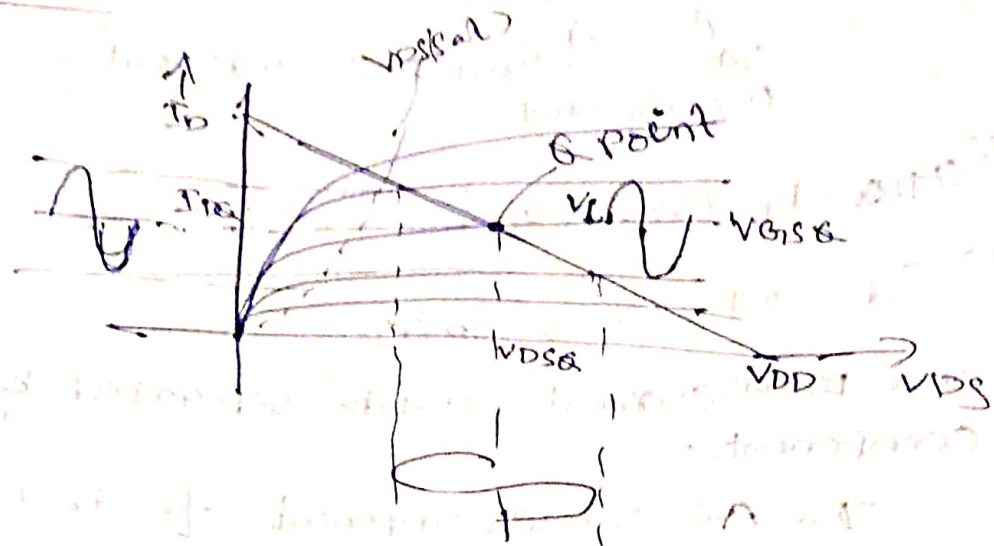 VDS(sat)
ID
Q Point
IDQ
Vi
VGSQ
VDSQ
VDD
VDS